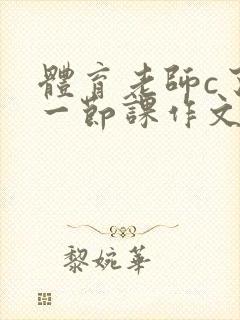 體育老師c了
一節課作文
黎婉華